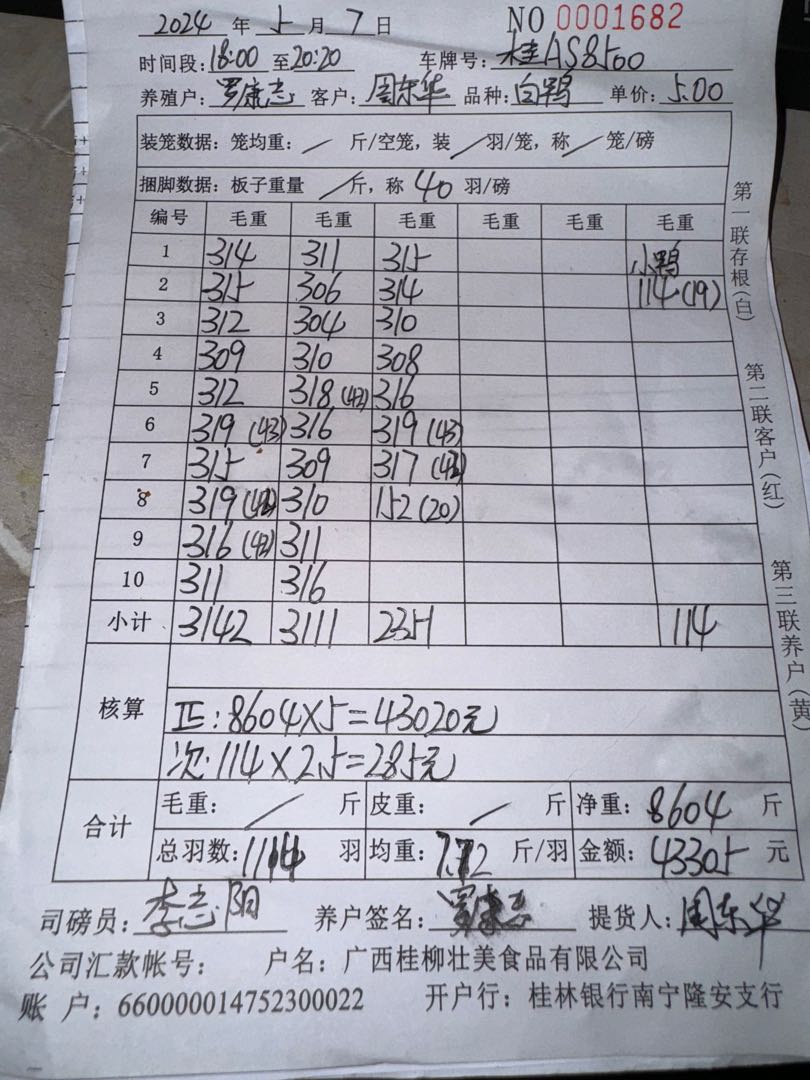 2024 年 5 月 7 日 NO 0001682
时间段: 18:00 至 20:20 车牌号: 桂AS8500
养殖户: 罗康志 客户: 周东华 品种: 白鸭 单价: 5.00
装笼数据: 笼均重: / 斤/空笼, 装 / 羽/笼, 称 / 笼/磅
捆脚数据: 板子重量 / 斤, 称 40 羽/磅
编号 毛重 毛重 毛重 毛重 毛重 毛重
1 314 311 315 小鸭
2 315 306 314 114(19)
3 312 304 310
4 309 310 308
5 312 318(42) 316
6 319(43) 316 319(43)
7 315 309 317(42)
8 319(42) 310 152(20)
9 316(42) 311
10 311 316
小计 3142 3111 2351 114
核算
正: 8604×5=43020元
次: 114×2.5=285元
合计
毛重: / 斤 皮重: / 斤 净重: 8604 斤
总羽数: 1114 羽 均重: 7.72 斤/羽 金额: 43305 元
司磅员: 李志阳 养户签名: 罗康志 提货人: 周东华
公司汇款帐号: 户名: 广西桂柳壮美食品有限公司
账 户: 660000014752300022 开户行: 桂林银行南宁隆安支行
第一联存根(白)
第二联客户(红)
第三联养户(黄)